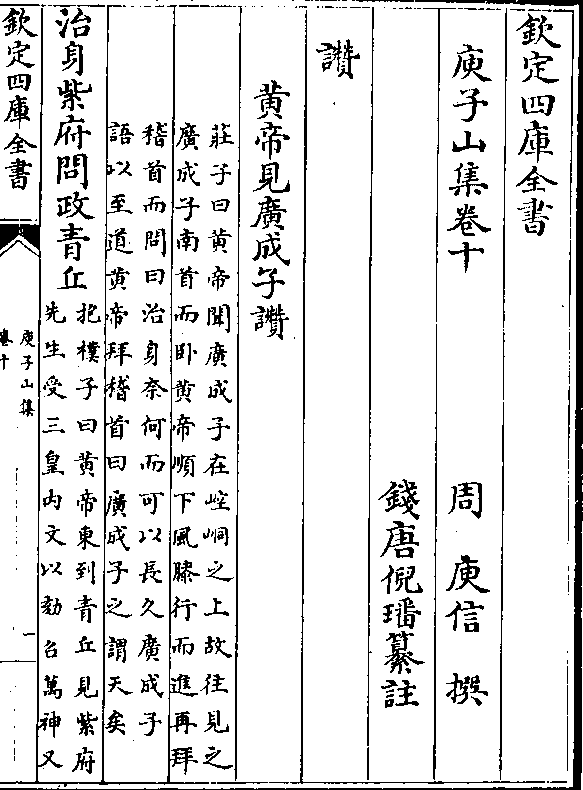 欽定四庫全書
庾子山集卷十
周　庾信　撰
錢唐倪璠纂註
讚
黄帝見廣成子讚
莊子曰黄帝聞廣成子在崆峒之上故往見之
廣成子南首而卧黄帝順下風膝行而進再拜
稽首而問曰治身奈何而可以長久廣成子
語以至道黄帝拜稽首曰廣成子之謂天矣
治身紫府問政青丘
抱樸子曰黄帝東到青丘見紫府
先生受三皇内文以劾召萬神又
欽定四庫全書
庾子山集
卷十
一